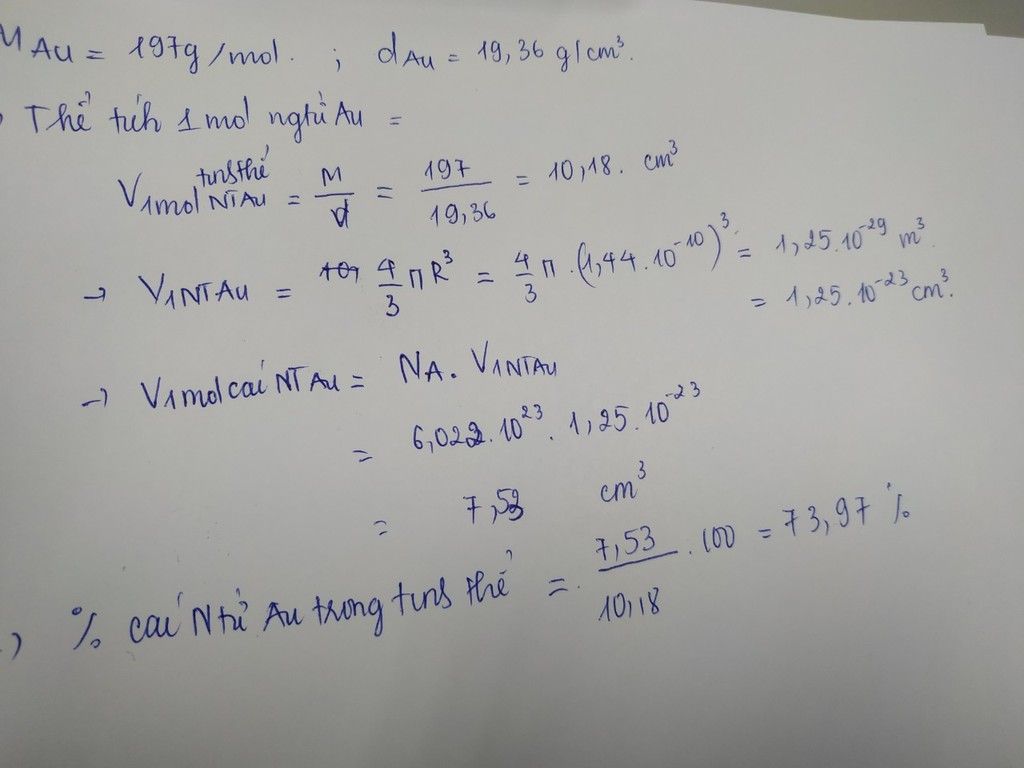 M Au = 197g/mol. ; dAu = 19,36 g/cm³.
Thể tích 1 mol ngtử Au =
V1mol NTAu tinh thể = M/d = 197/19,36 = 10,18. cm³
→ V1NTAu = 4/3 π R³ = 4/3 π . (1,44.10⁻¹⁰)³ = 1,25.10⁻²⁹ m³.
= 1,25.10⁻²³ cm³.
→ V1mol cái NTAu = NA. V1NTAu
= 6,022.10²³. 1,25.10⁻²³
= 7,53 cm³
% cái Ntử Au trong tinh thể = 7,53/10,18 . 100 = 73,97 %